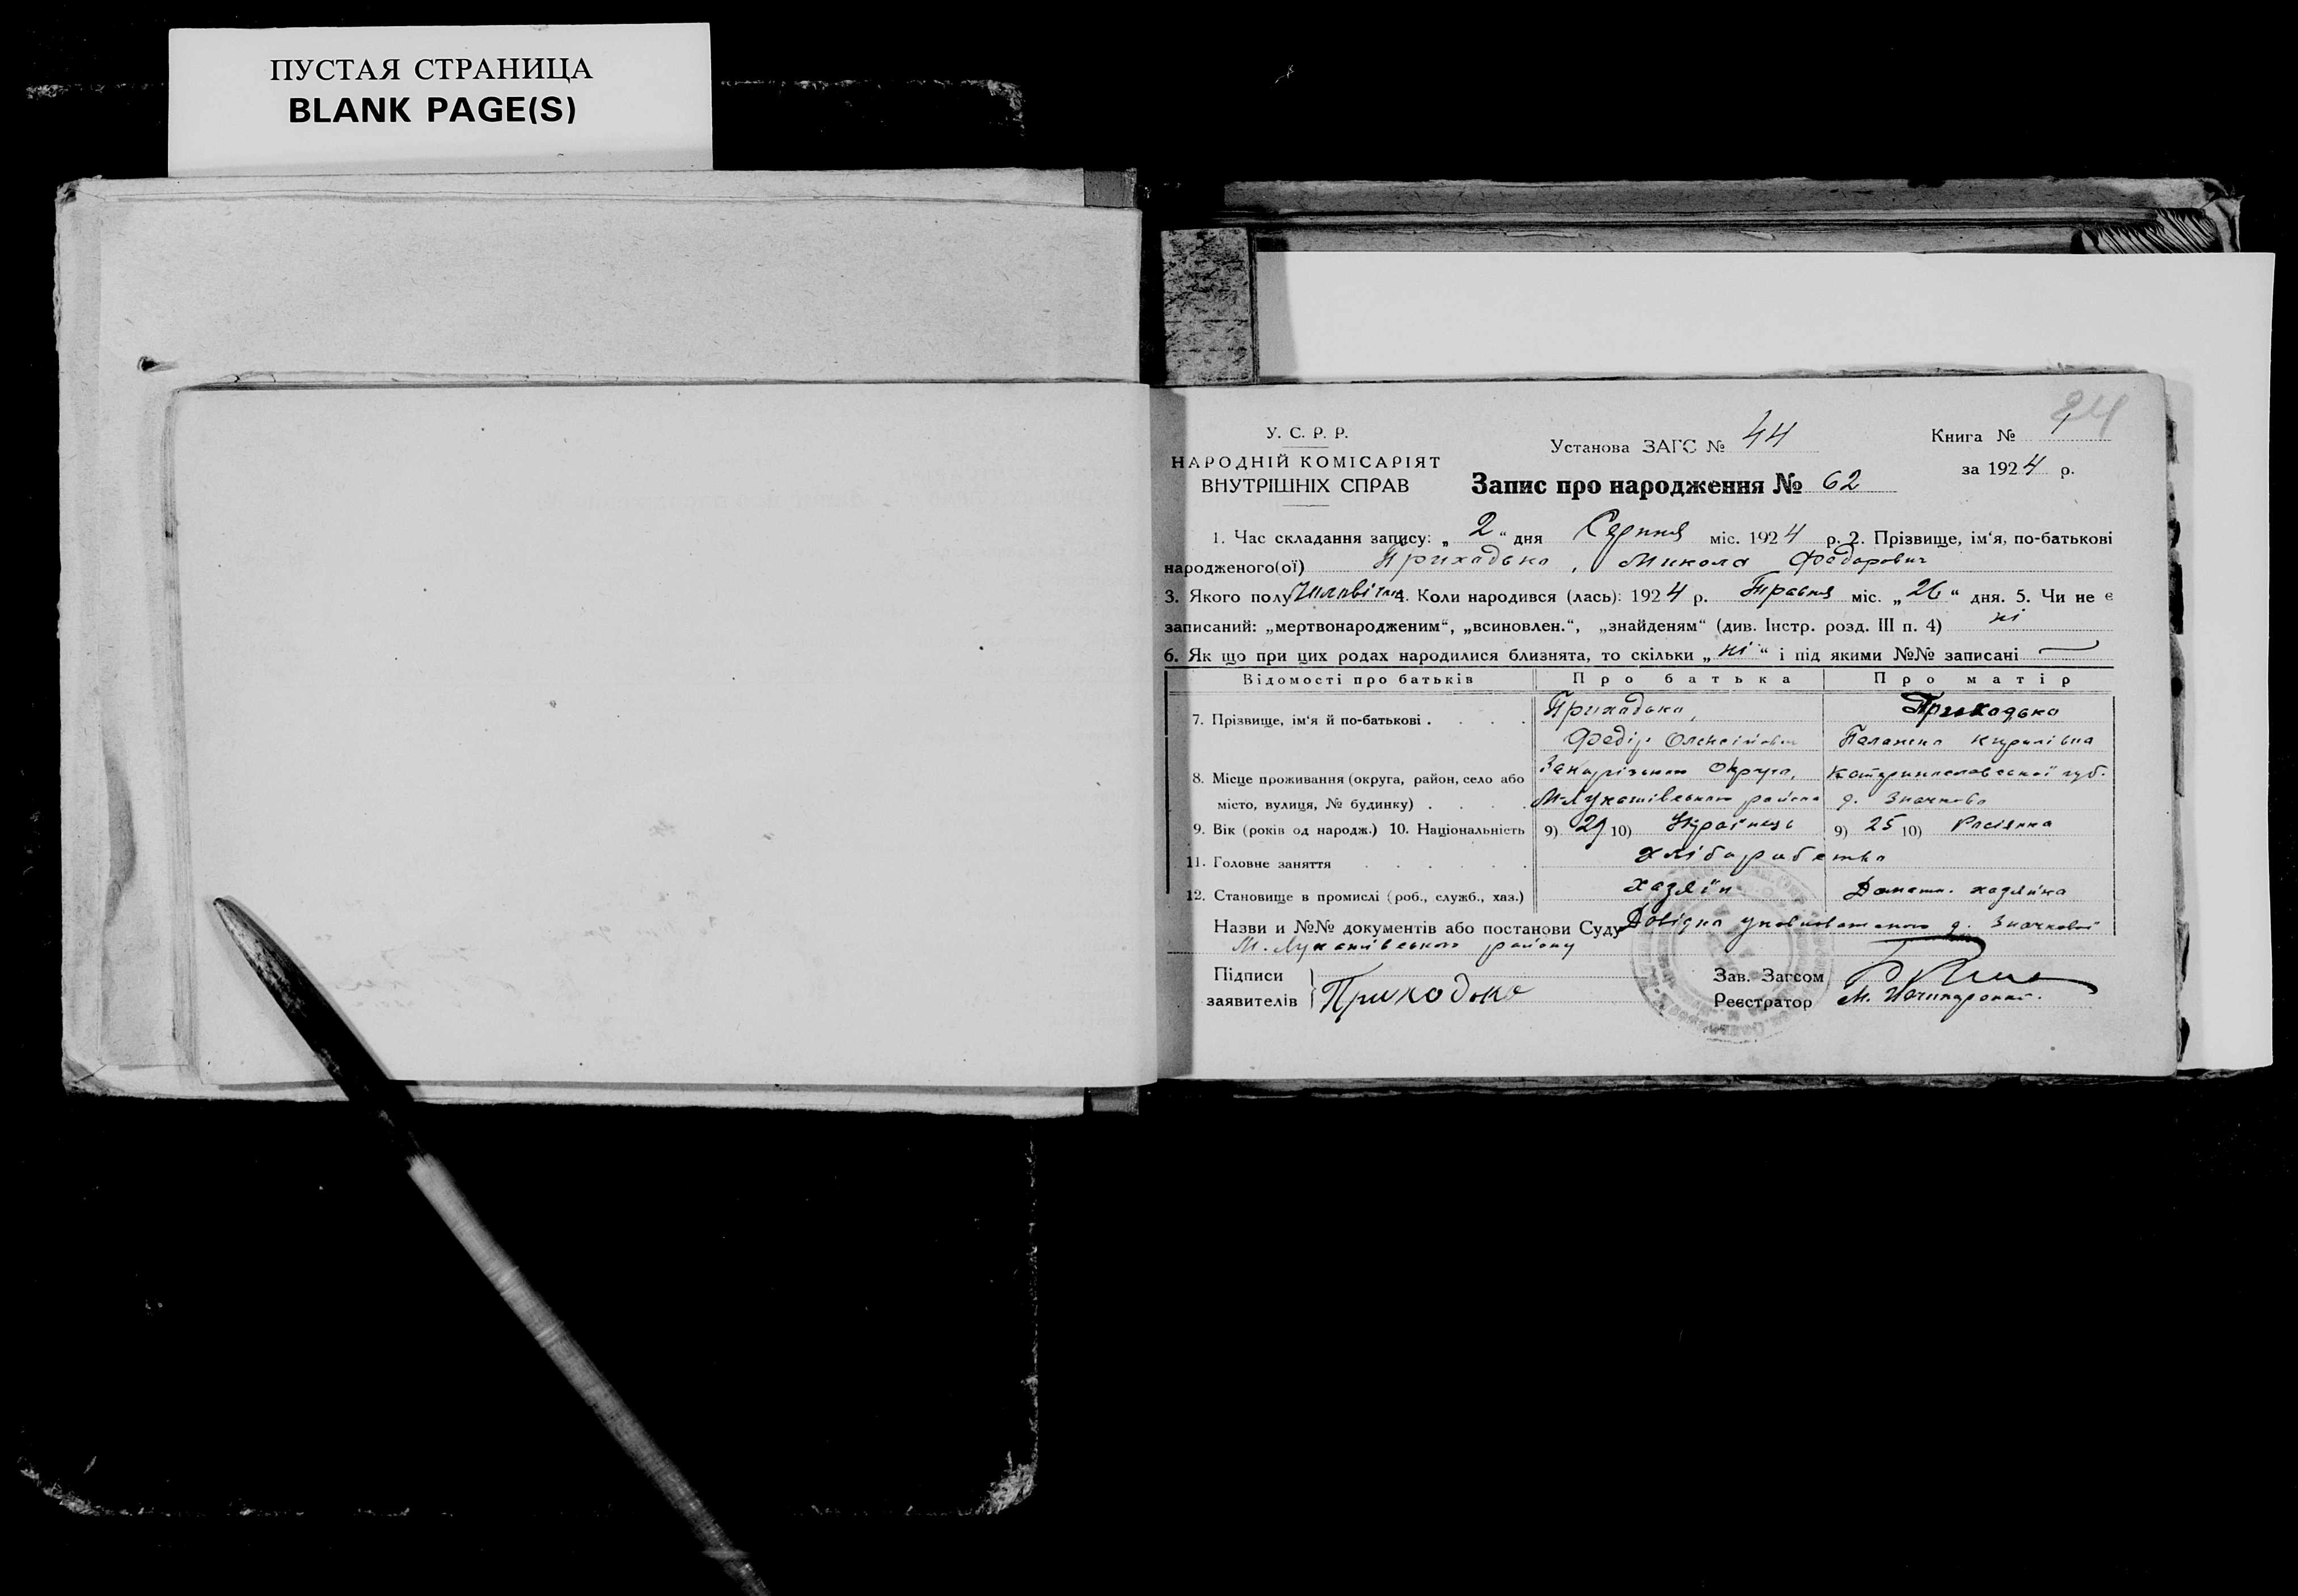 ПУСТАЯ СТРАНИЦА
BLANK PAGE(S)
24
У. С. Р. Р.
НАРОДНІЙ КОМІСАРІЯТ
ВНУТРІШНІХ СПРАВ
Установа ЗАГС № 44
Книга № 1
за 1924 р.
Запис про народження № 62
1. Час складання запису: „ 2 “ дня Серпня міс. 1924 р. 2. Прізвище, ім‘я, по-батькові
народженого(ої) Приходько, Микола Федорович
3. Якого полу 4. Коли народився (лась): 1924 р. Травня міс. „ 26 “ дня. 5. Чи не є
записаний: „мертвонародженим“, „всиновлен.“, „знайденям“ (див. Інстр. розд. III п. 4) ні
6. Як що при цих родах народилися близнята, то скільки „ ні “ і під якими №№ записані —
Відомості про батьків Про батька Про матір
7. Прізвище, ім‘я й по-батькові . . . . Приходько, Приходько
Федір Олексійович Кирилівна
8. Місце проживання (округа, район, село або Округи, губ.
місто, вулиця, № будинку) . . . . М-Лукашівського района д. Значково
9. Вік (років од народж.) 10. Національність 9) 29 10) Українець 9) 25 10) Росіянка
11. Головне заняття . . . . . . хліборобство
12. Становище в промислі (роб., служб., хаз.) хазяїн Домашн. хазяйка
Назви и №№ документів або постанови Суду Довідка уповноваженого д. Значкової
М. Лукашівського району
Підписи
заявителів Приходько
Зав. Загсом
Реєстратор М.